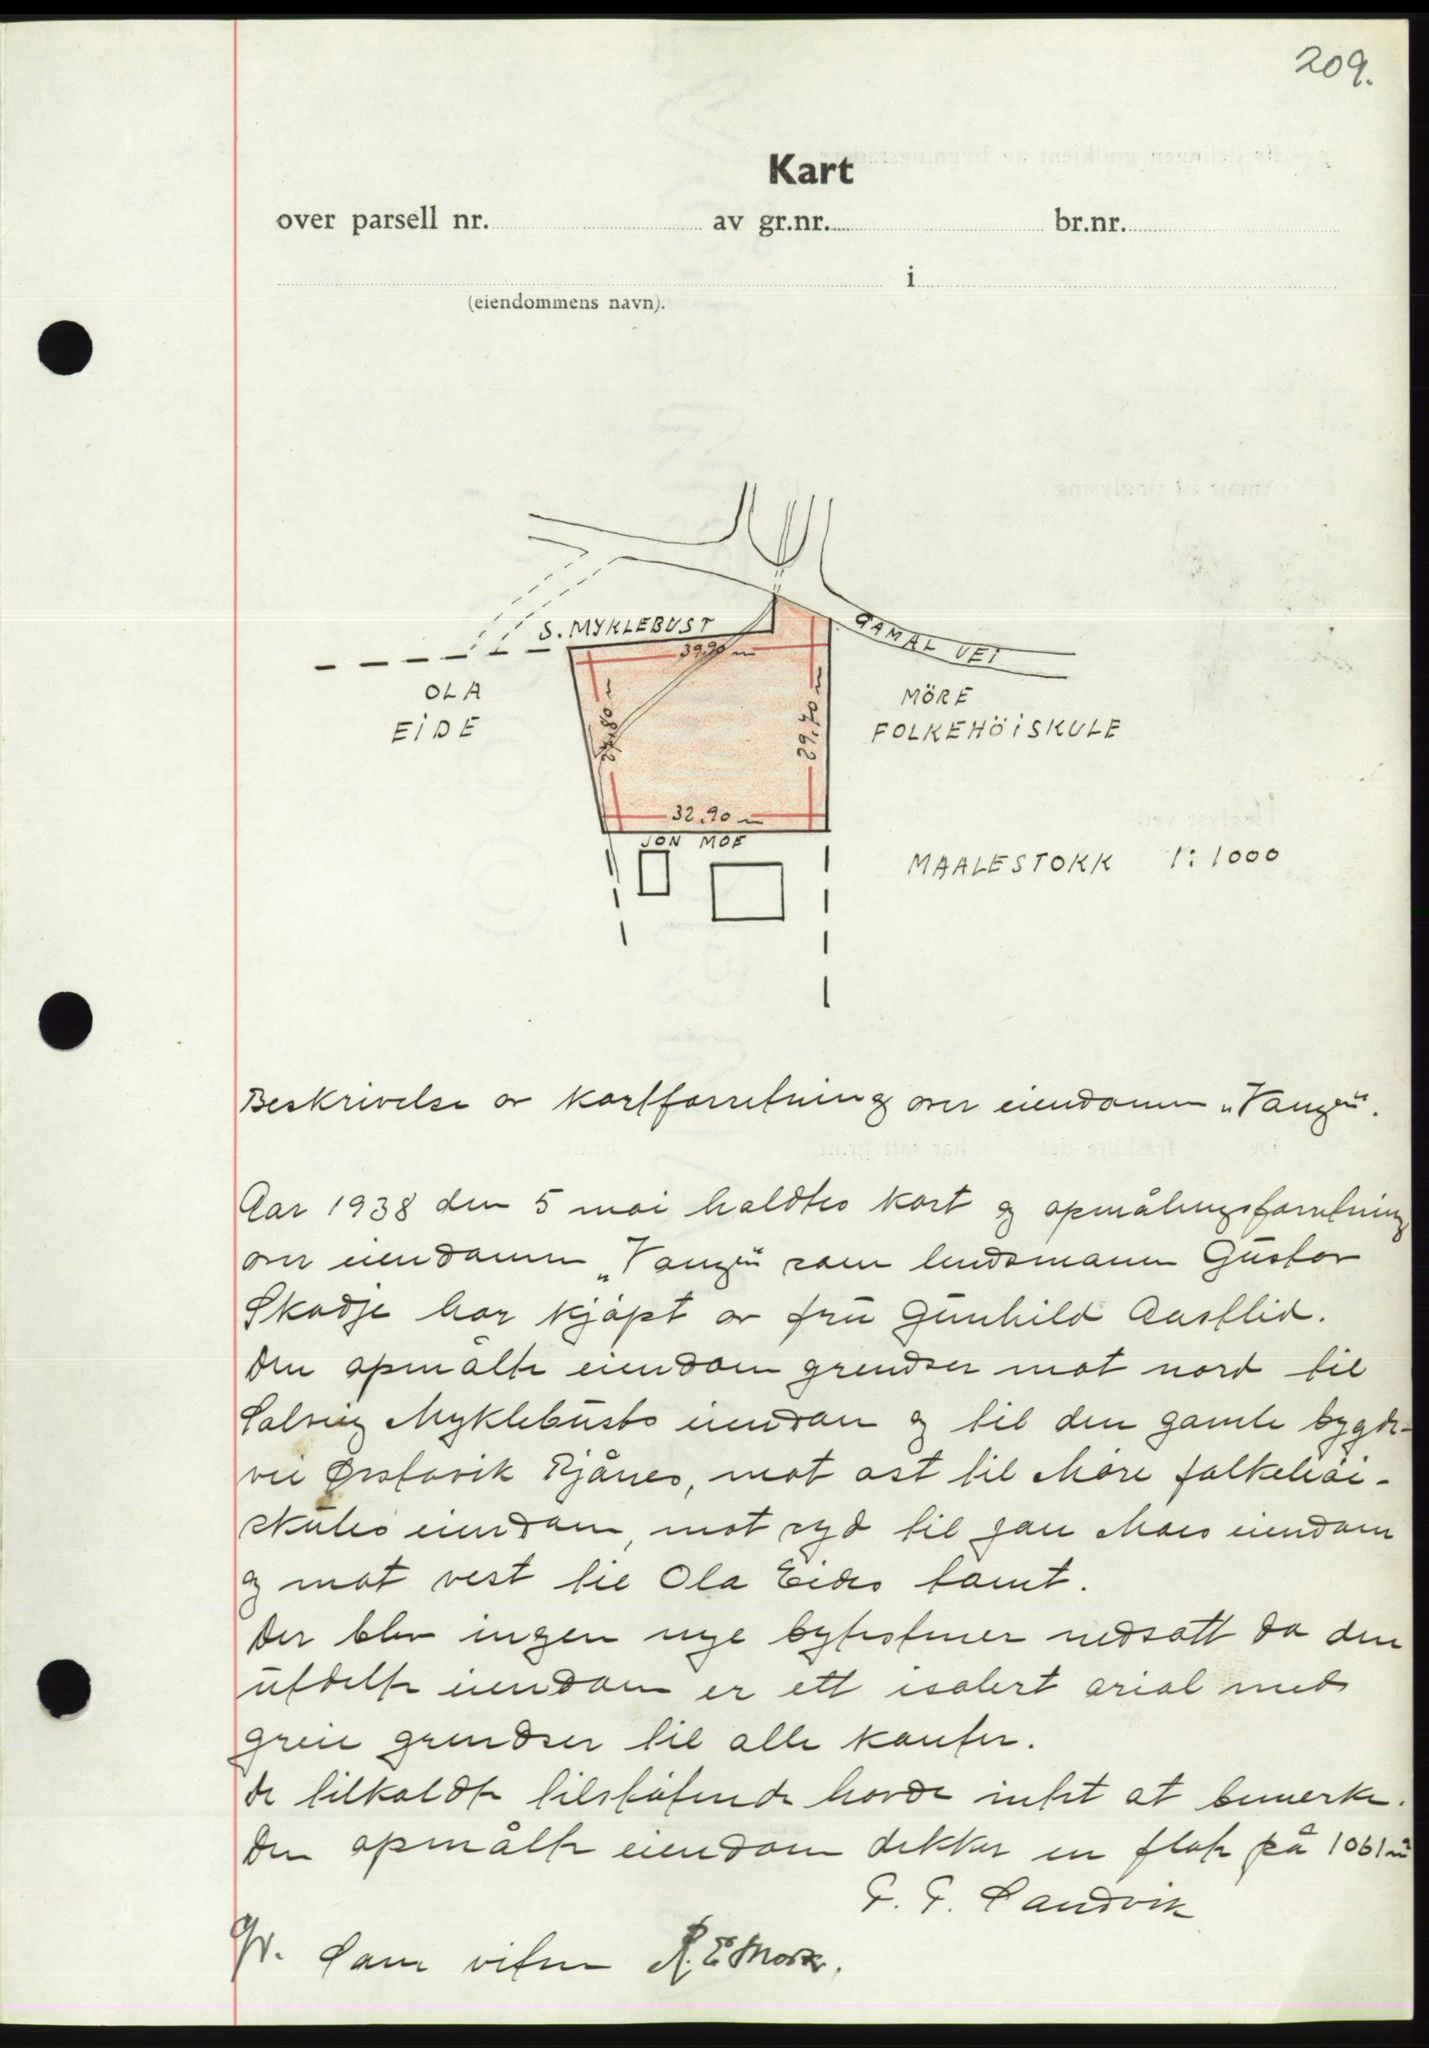 209.
Kart
over parsell nr. av gr.nr. br.nr.
i
(eiendommens navn).
S. MYKLEBUST
GAMAL VEI
39,90 m
OLA
EIDE
27,80 m
29,70 m
MÖRE
FOLKEHÖISKULE
32,90 m
JON MOE
MAALESTOKK 1:1000
Beskrivelse av kartforretning over eiendommen „Vangen".
Aar 1938 den 5 mai holdtes kart og opmålingsforretning
over eiendommen „Vangen" som lendsmannen Gustav
Skodje har kjöpt av fru Gunhild Aaslid.
Den opmålte eiendom grendser mot nord til
Solveig Myklebusts eiendom og til den gamle bygde-
vei Ørstavik Rjånes, mot öst til Möre folkehöi-
skules eiendom, mot syd til Jon Moes eiendom
og mot vest til Ola Eides tomt.
Der blev ingen nye bytestener nedsatt da den
utdelte eiendom er ett isolert arial med
greie grendser til alle kanter.
De tilkaldte tilstötende havde intet at bemerke.
Den opmålte eiendom dekker en flate på 1061 m²
Sandvik
Som vitne R. E. Mork.